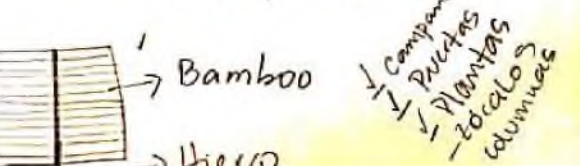 Bamboo
Hierro
✓ Puertas
✓ Plantas
- zócalos
columnas